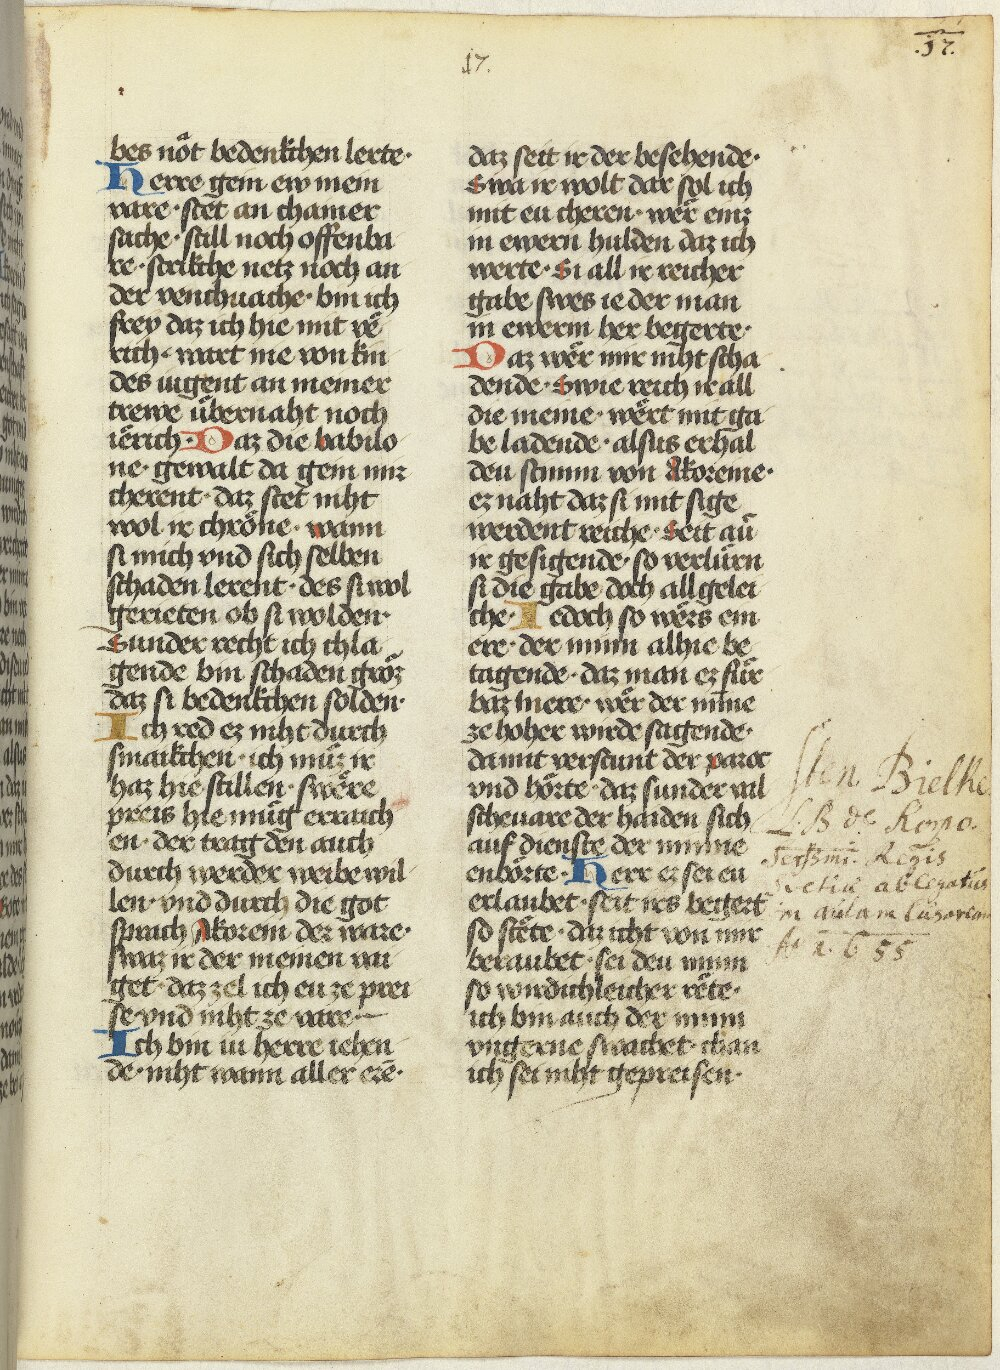 17.
.17.
bes nôt bedenkchen lerte·
Herre gein ew mein
vare· stet an chainer
sache· still noch offenba
re· strikche netz noch an
der venchuache· bin ich
frey daz ich hie mit vê
rich· wart nie von kin
des iugent an meiner
trewe übernaht noch
iêrich· Daz die babilo
ne· gewalt da gein mir
cherent· daz stet niht
wol ir chrône· wann
si mich vnd sich selben
schaden lerent· des si wol
gerieten ob si wolden·
Sunder recht ich chla
gende bin schaden grôz
daz si bedenkchen solden·
Ich red ez niht durch
smaikchen· ich mûz ir
haz hie stillen· swêre
preis hie mûg erraich
en· der tragt den auch
durch werder weibe wil
len· vnd durch die got
sprach Akorein der ware·
swaz ir der meinen vai
get· daz zel ich eu ze prei
se· vnd niht ze vare
Ich bin iu herre iehen
de· niht wann aller ere·
daz seit ir der besehende·
Swa ir wolt dar sol ich
mit eu cheren· wêr einz
in ewern hulden daz ich
werte· Si all ir reicher
gabe swes ie der man
in ewerm her begerte·
Daz wêr mir niht scha
dende· Swie reich ir all
die meine· wêrt mit ga
be ladende· alsus erhal
deu stimm von Akoreine·
ez naht daz si mit sige
werdent reiche· Seit aû
ir gesigende· so verlürn
si die gabe doch all gelei
che· Iedoch so wêrs ein
ere· der minn alhie be
tagende· daz man ez für
baz mere· wêr der minne
ze hoher wirde sagende·
da mit verstunt der paroc
vnd hôrte· daz sunder vil
scheuare der haiden sich
auf dienste der minne
enbôrte· Herr ez sei eu
erlaubet· seit irs begert
so stête· daz icht von mir
beraubet· sei deu minn
so wirdichleicher rête·
ich bin auch der minn
vngerne swachet· chan
ich sei niht gepreisen·
Sten Bielke
L. B de Korpo.
Serssmi. Regis
Svetiæ ablegatus
in aulam Cæsaream
Aº 1655